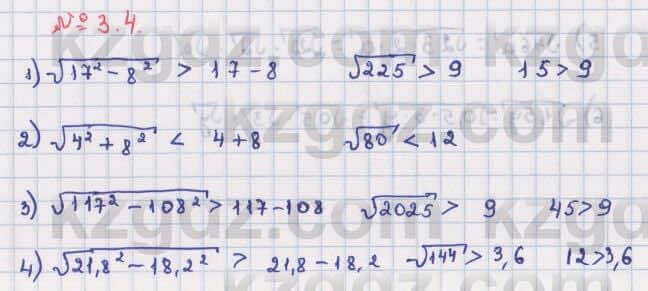 № 3.4.
1) √(17² - 8²) > 17 - 8 √225 > 9 15 > 9
2) √(4² + 8²) < 4 + 8 √80 < 12
3) √(117² - 108²) > 117 - 108 √2025 > 9 45 > 9
4) √(21,8² - 18,2²) > 21,8 - 18,2 √144 > 3,6 12 > 3,6
kzgdz.com